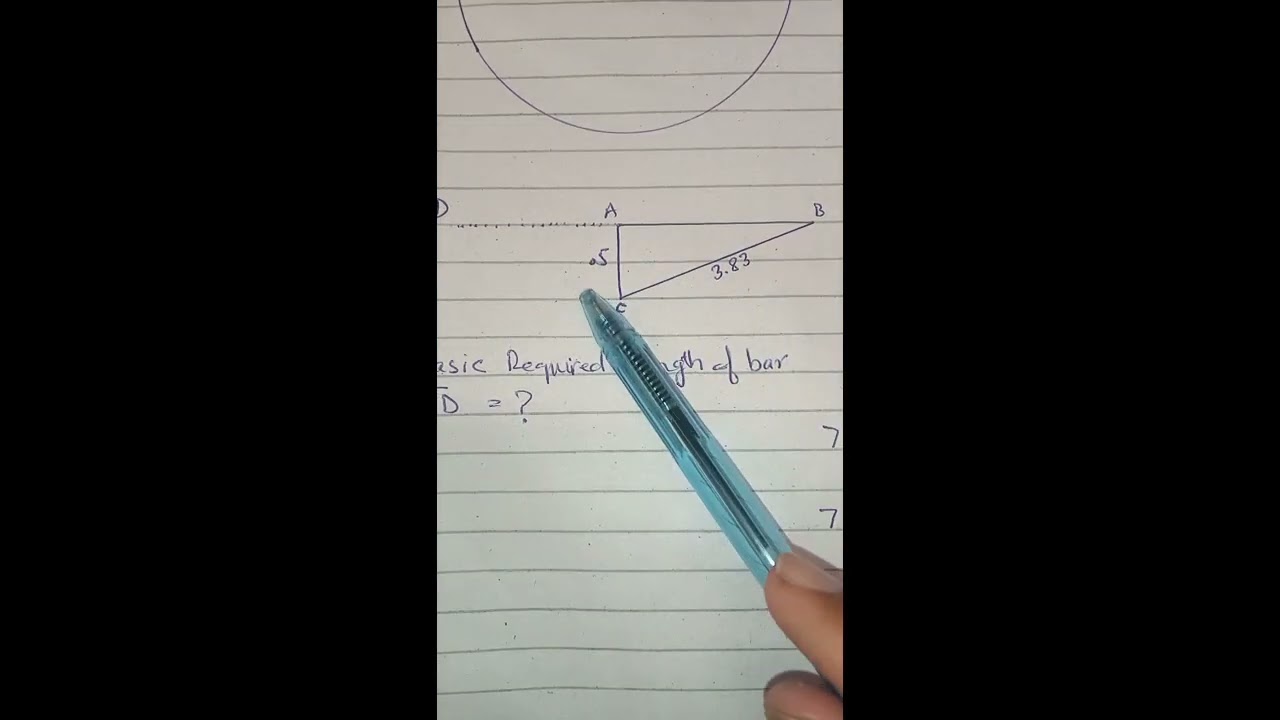 D A B
.5
3.83
C
asic Required of bar
D = ?
7
7